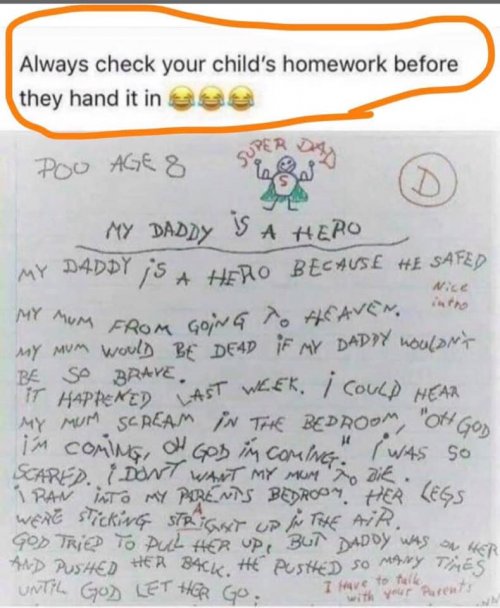 Always check your child's homework before
they hand it in 😂😂😂
SUPER DAD
POU AGE 8
S
D
MY DADDY iS A HERO
MY DADDY iS A HERO BECAUSE HE SAFED
Nice
intro
MY MUM FROM GOiNG TO HEAVEN.
MY MUM WOULD BE DEAD iF MY DADDY WOULDN'T
BE SO BRAVE.
iT HAPPENED LAST WEEK. i COULD HEAR
MY MUM SCREAM iN THE BEDROOM, "OH GOD
i'M COMiNG, OH GOD i'M COMiNG." i WAS SO
SCARED. i DON'T WANT MY MUM TO DiE.
i RAN iNTO MY PARENTS BEDROOM. HER LEGS
A
WERE STiCKiNG STRiGHT UP iN THE AiR.
GOD TRiED TO PULL HER UP, BUT DADDY WAS ON HER
AND PUSHED HER BACK. HE PUSHED SO MANY TiMES
UNTiL GOD LET HER GO.
I Have to talk
with your Parents